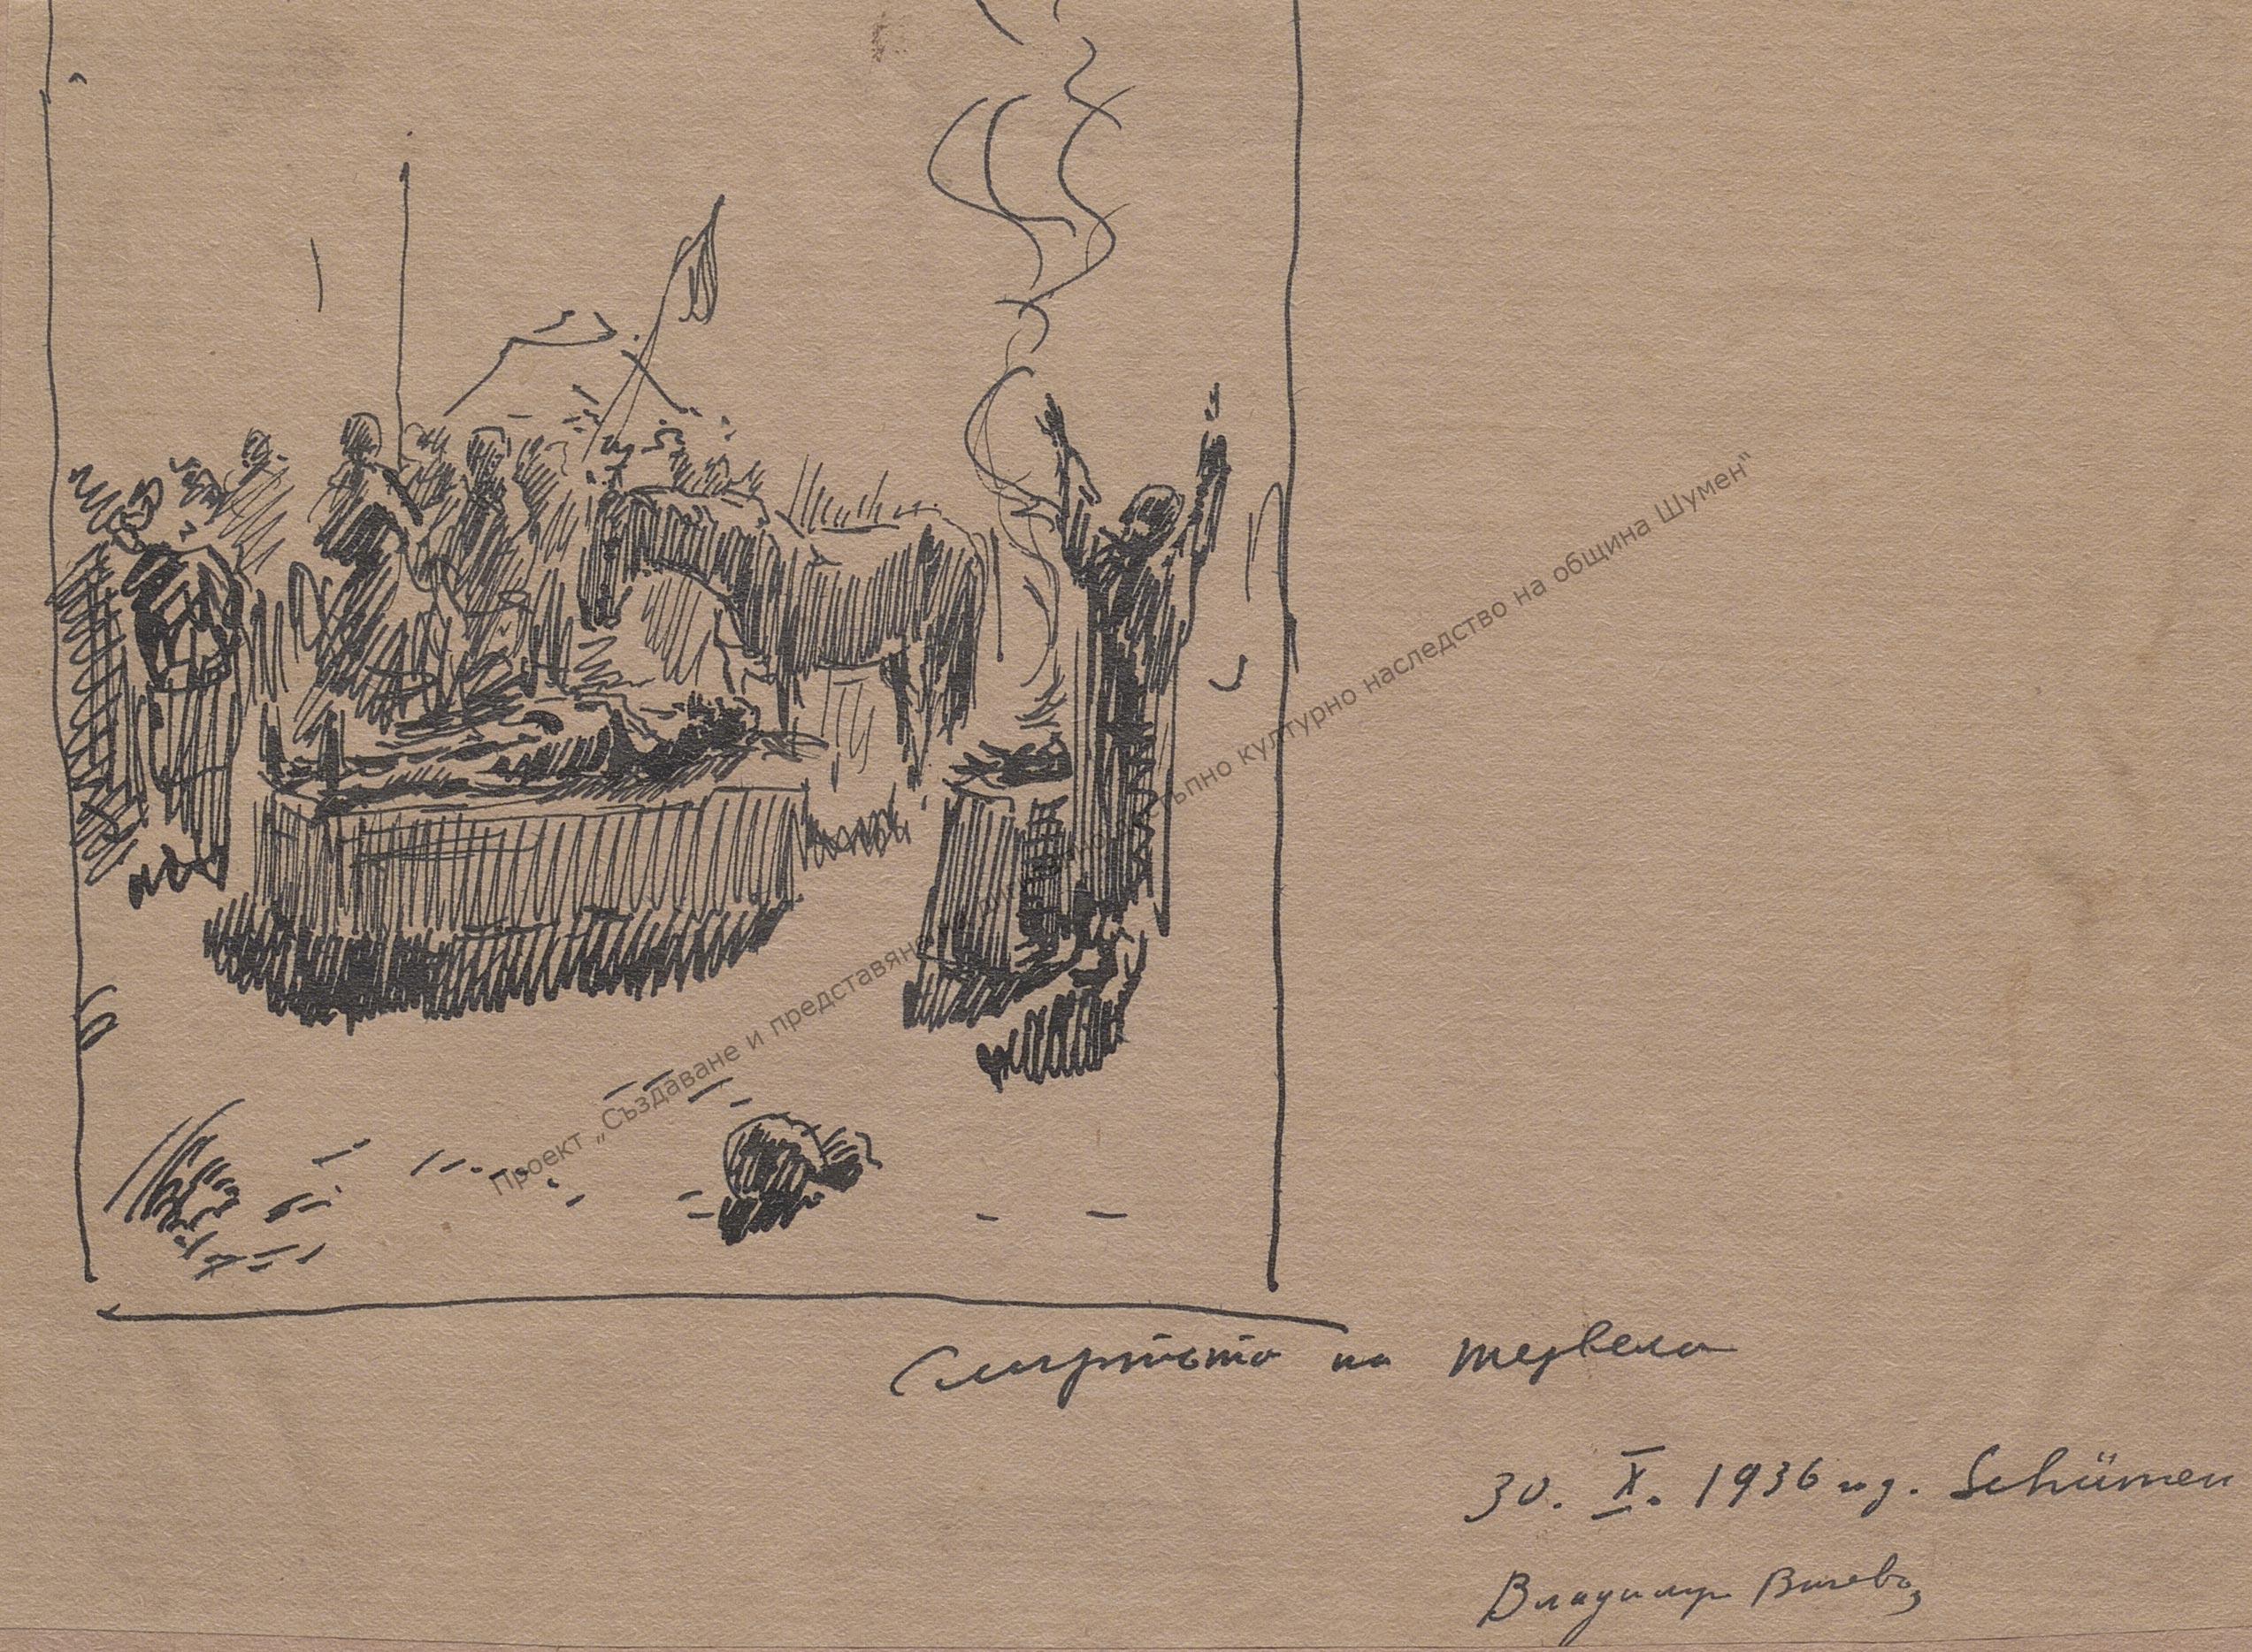 Проект „Създаване и представяне на достъпно културно наследство на община Шумен"
Смъртьта на тервела
30. X. 1936 год. Schümen
Владимир